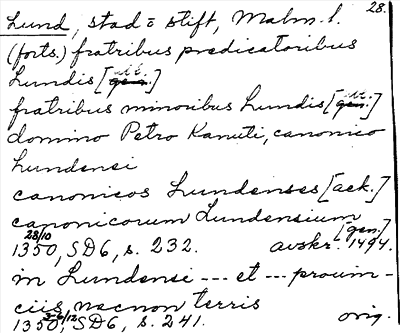 28.
Lund, stad o stift, Malm. l.
(forts.) fratribus predicatoribus
Lundis [gen.]
fratribus minoribus Lundis [gen.]
domino Petro Kanuti, canonico
Lundensi
canonicos Lundenses [ack.]
canonicorum Lundensium [gen.]
1350 28/10, SD6, s. 232. avskr. 1494.
in Lundensi --- et --- prouin-
ciis necnon terris
1350, SD6, s. 241. orig.